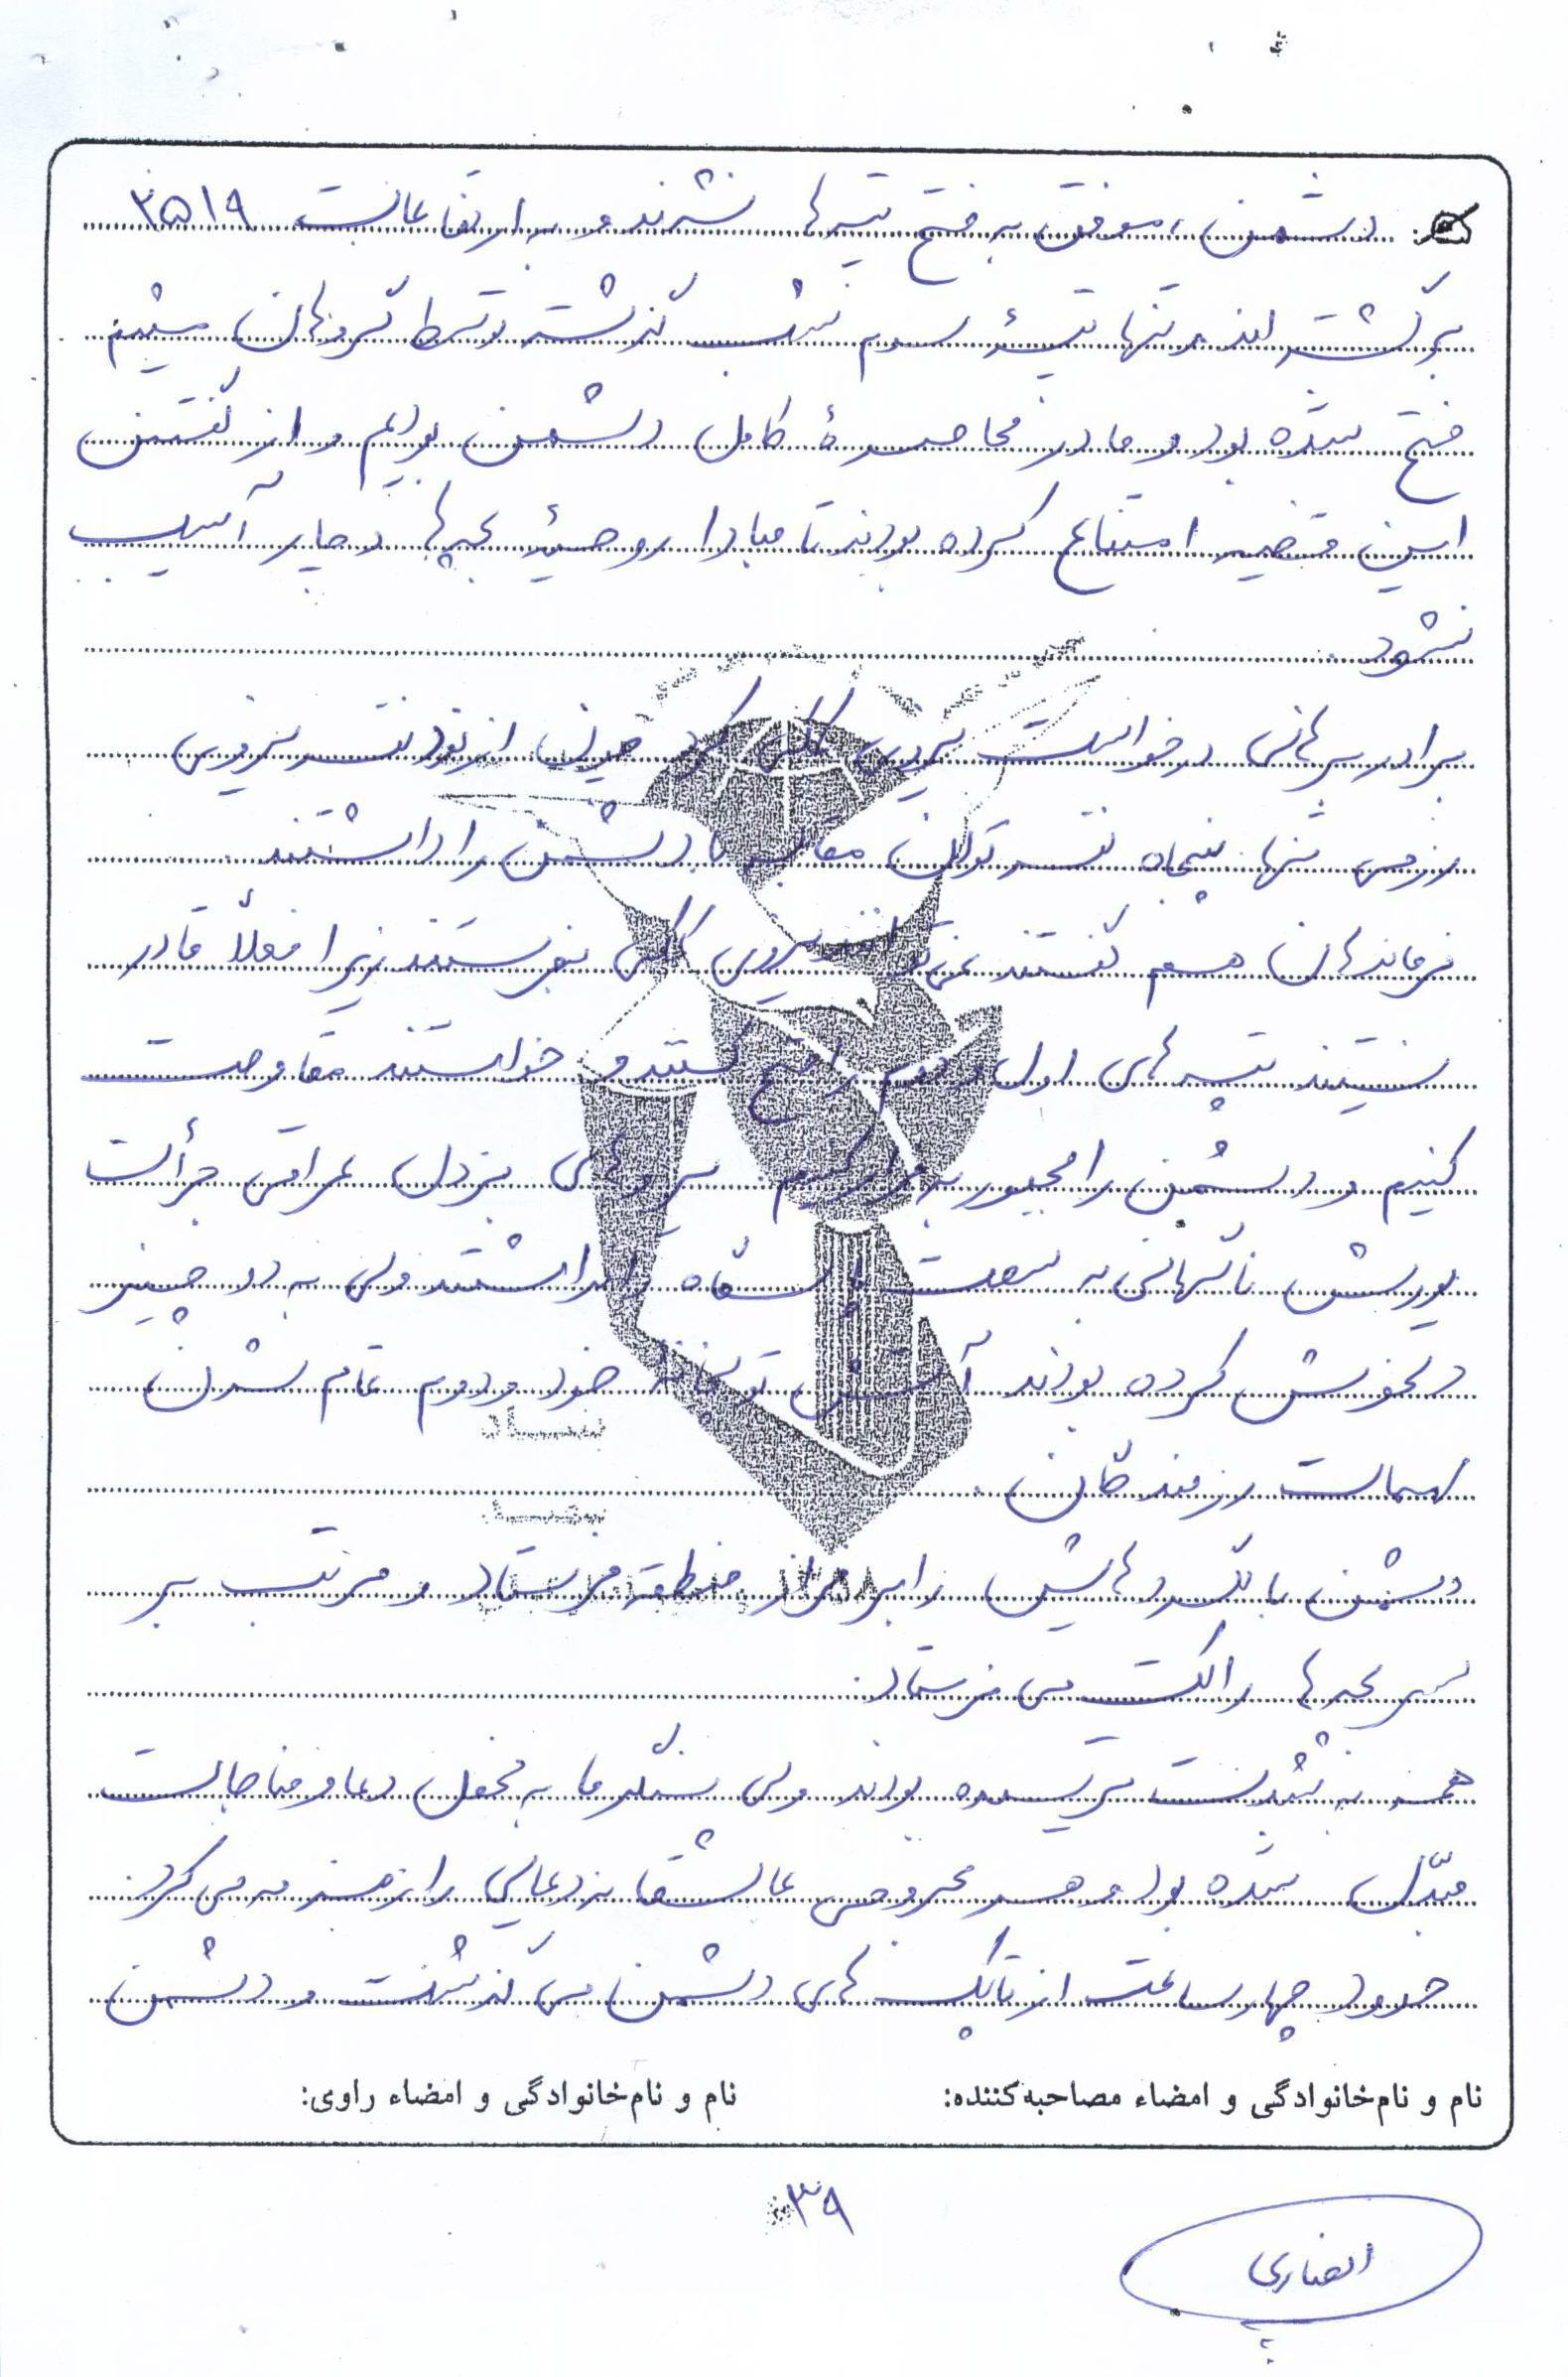 دشمن، موفق به فتح تپه‌ها نشدند و به ارتفاعات ۲۵۱۹
برگشته‌اند و تنها تپهٔ سوم شب گذشته توسط گروهان میثم
فتح شده بود و ما در محاصرهٔ کامل دشمن بودیم و از گفتن
این قضیه امتناع کرده بودند تا مبادا روحیهٔ بچه‌ها دچار آسیب
نشود.
برادر برهانی درخواست نیروی کمکی کرد چون از نود نفر نیروی
رزمی تنها پنجاه نفر توان مقابله با دشمن را داشتند.
فرماندهان هم گفتند نمی‌توانند نیروی کمکی بفرستند زیرا فعلاً قادر
نیستند تپه‌های اول و دوم را فتح کنند و خواستند مقاومت
کنیم و دشمن را مجبور به فرار کنیم. نیروهای بزدل عراقی جرأت
یورش ناگهانی به سمت پاسگاه را نداشتند ولی به دو چیز
دلخوش کرده بودند آتش توپخانه خود و دوم تمام شدن
مهمات رزمندگان.
دشمن بالگردهایش را بر فراز منطقه فرستاد و مرتب بر
سر بچه‌ها راکت می‌فرستاد.
همه به شدت ترسیده بودند ولی سنگر ما به محفل دعا و مناجات
مبدّل شده بود و هر مجروحی عاشقانه دعایی را زمزمه می‌کرد.
حدود چهار ساعت از تاپک‌های دشمن می‌گذشت و دشمن
نام و نام‌خانوادگی و امضاء مصاحبه‌کننده: نام و نام‌خانوادگی و امضاء راوی:
۳۹
انصاری